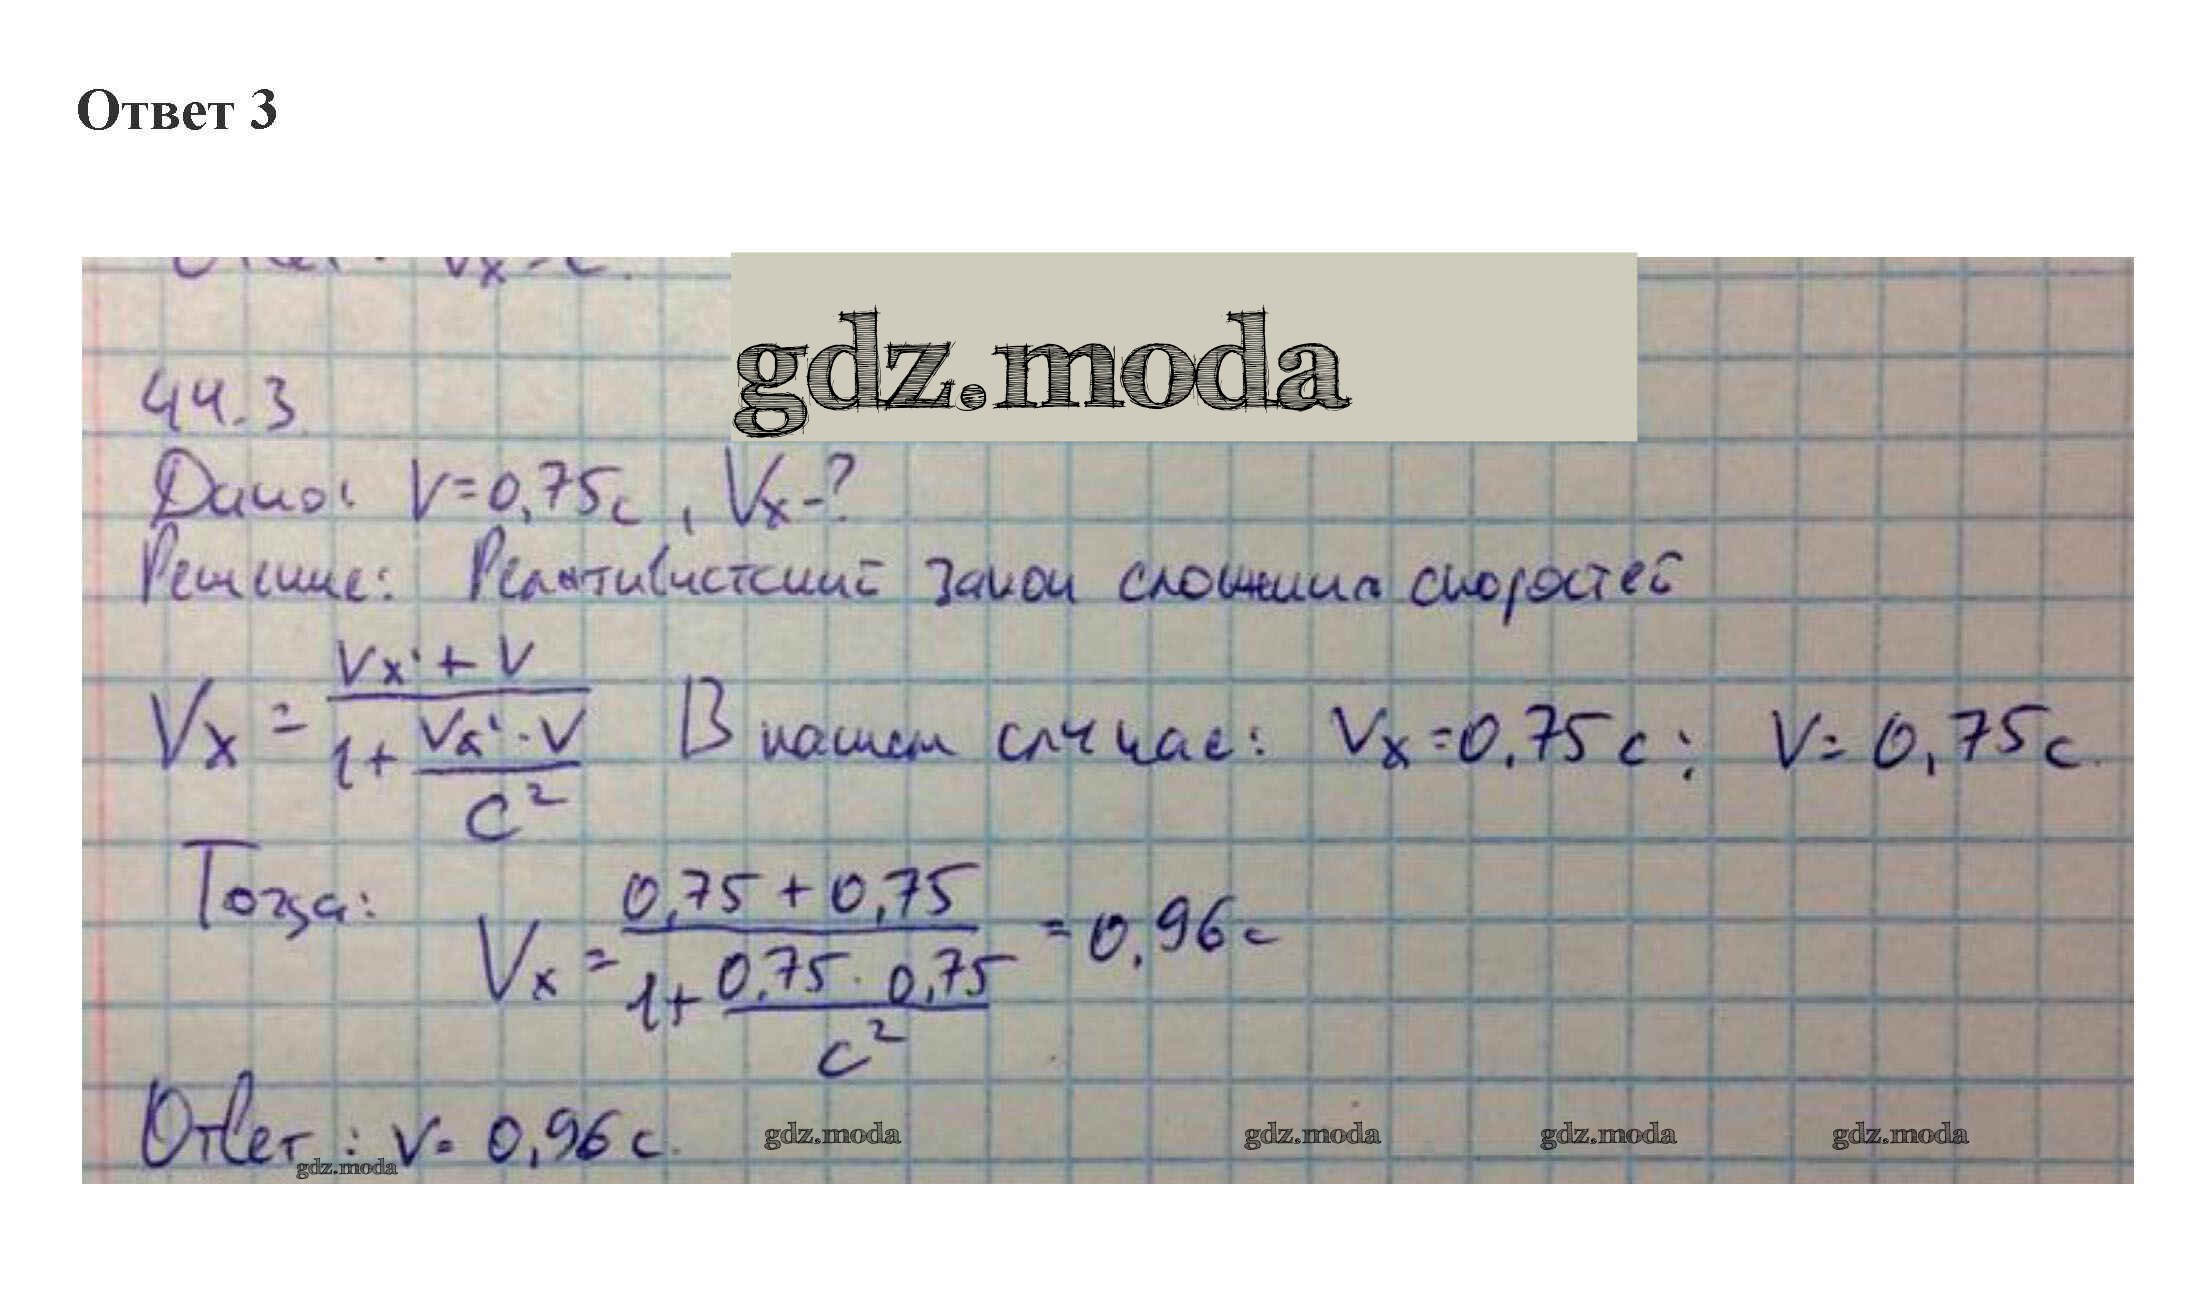 Ответ 3
gdz.moda
44.3
Дано: V=0,75c, Vx-?
Решение: Релятивистский закон сложения скоростей
Vx = (Vx' + V) / (1 + (Vx' · V) / c²) В нашем случае: Vx=0,75c; V=0,75c.
Тогда: Vx = (0,75 + 0,75) / (1 + (0,75 · 0,75) / c²) = 0,96c
Ответ: V= 0,96c.
gdz.moda gdz.moda gdz.moda gdz.moda gdz.moda